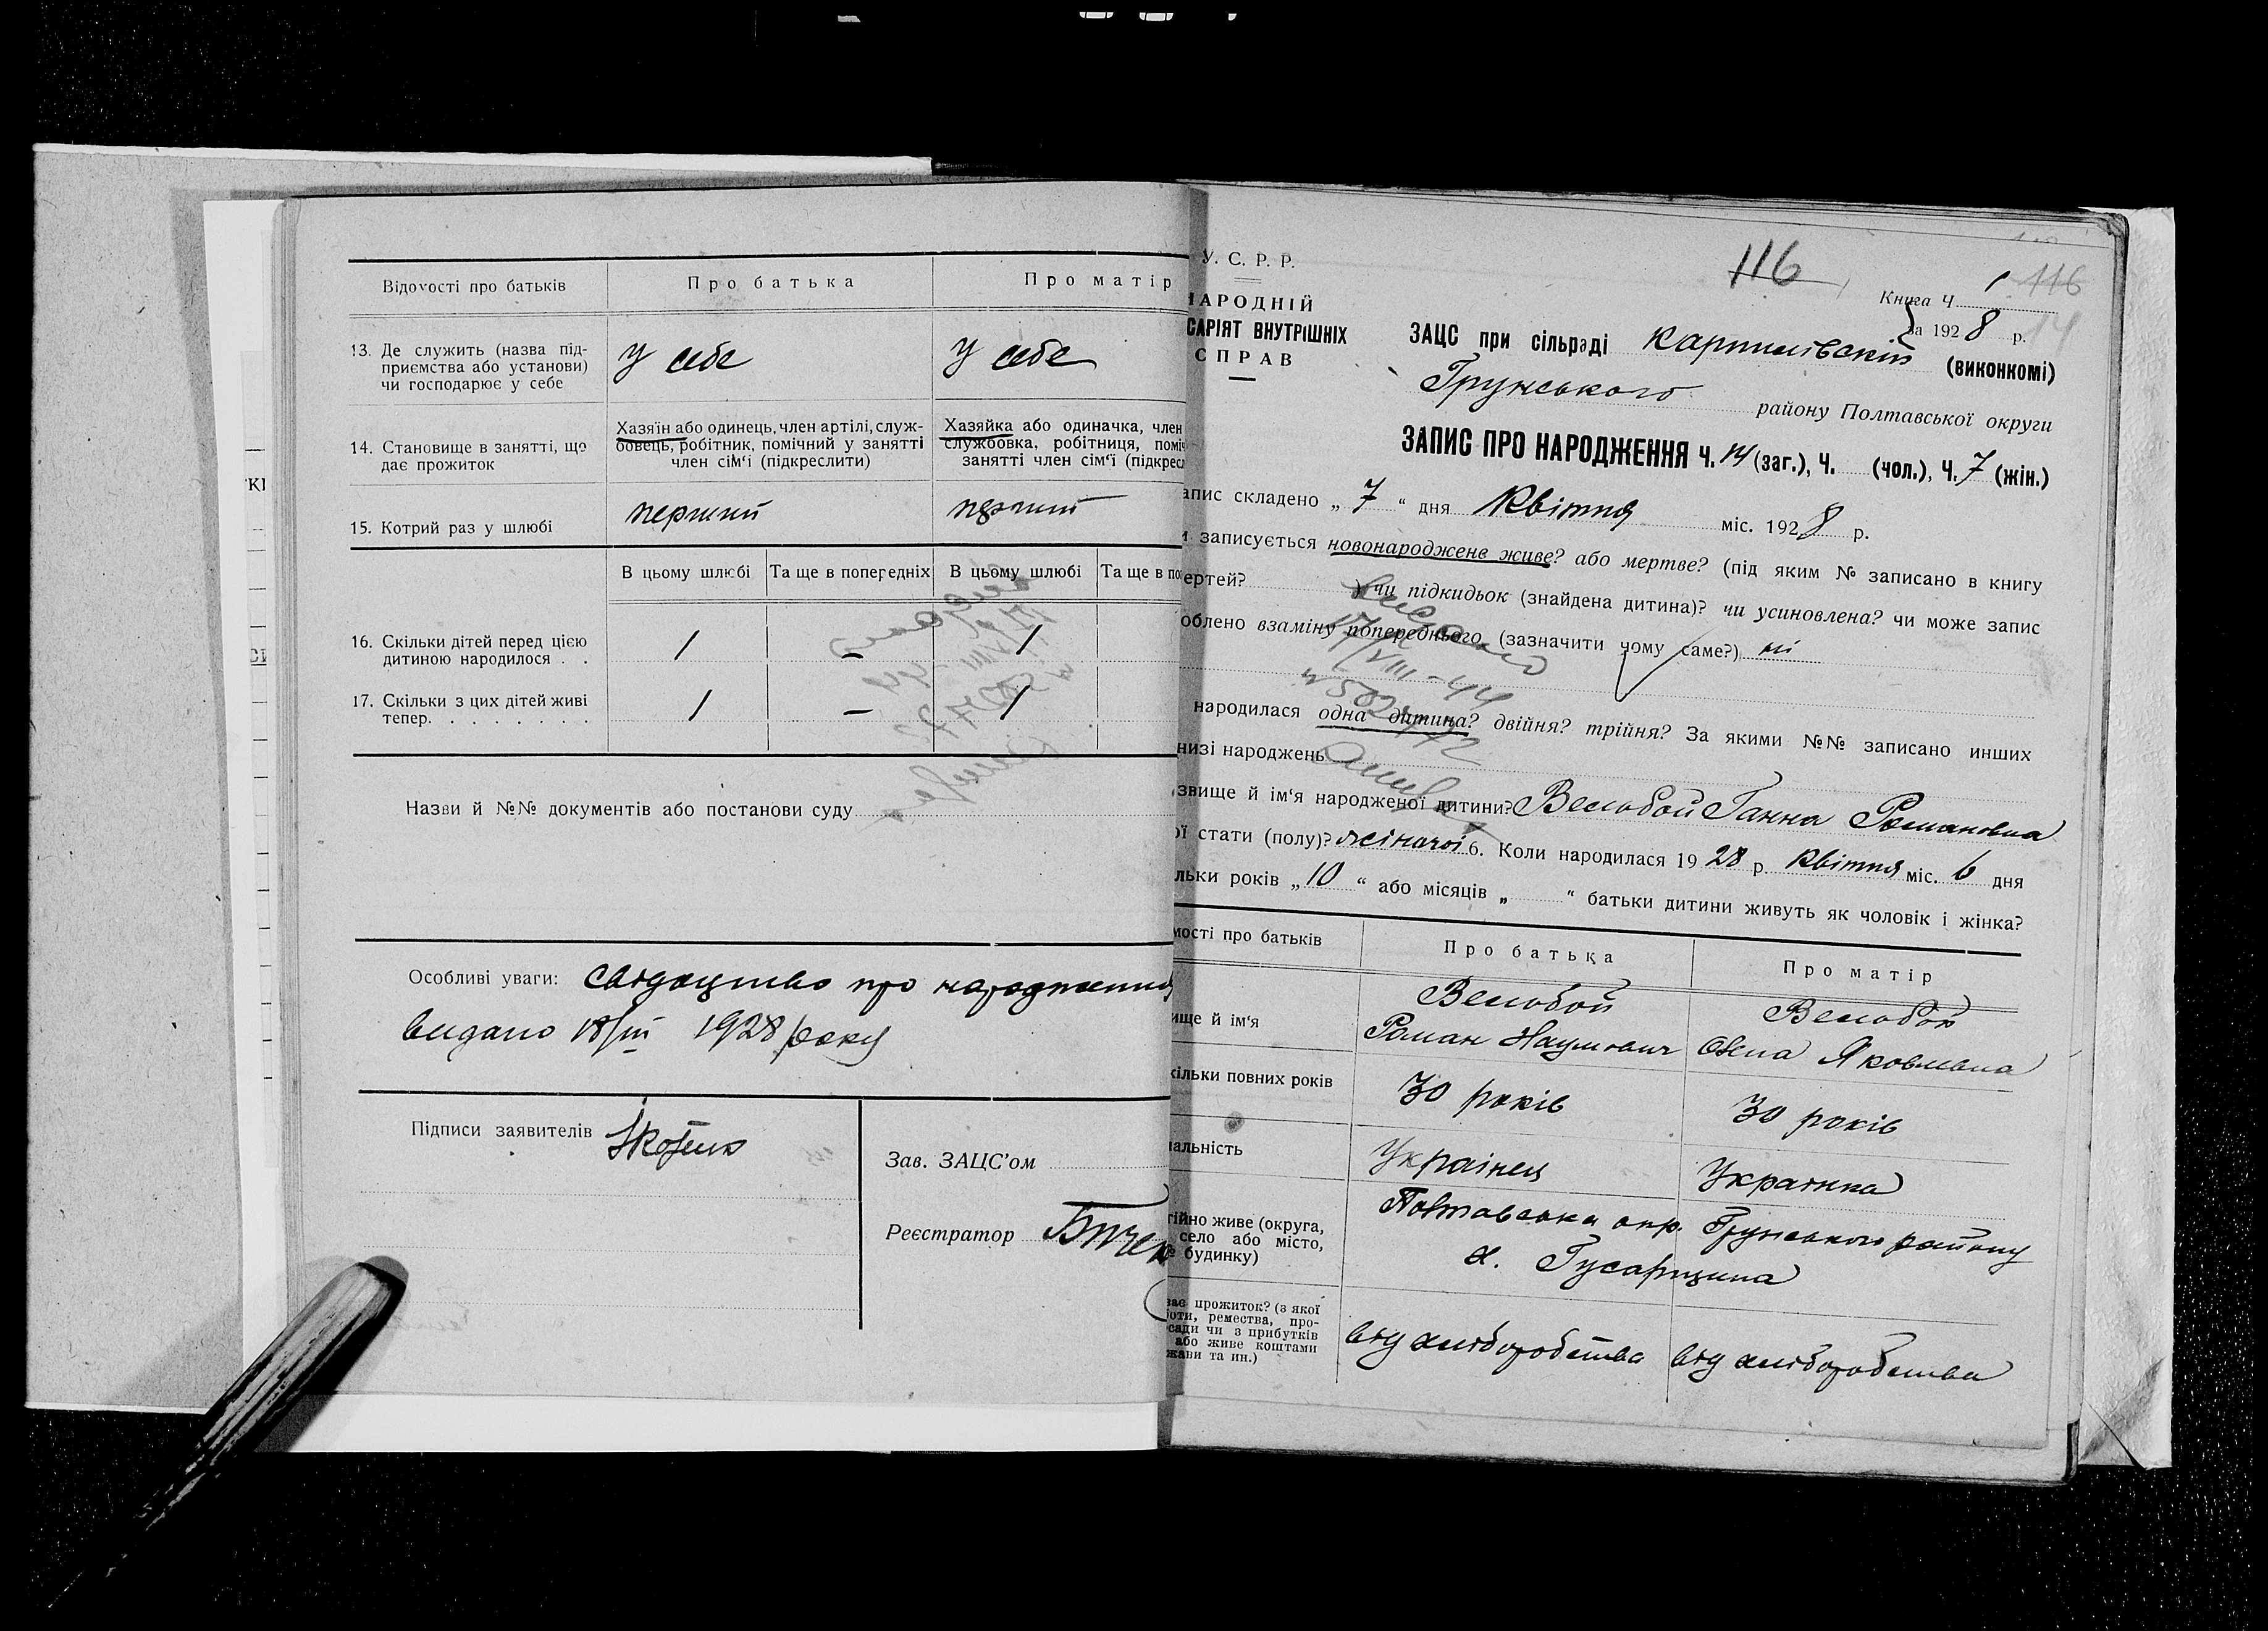 Відомості про батьків
Про батька
Про матір
13. Де служить (назва під-
приємства або установи)
чи господарює у себе
у себе
у себе
14. Становище в занятті, що
дає прожиток
Хазяїн або одинець, член артілі, служ-
бовець, робітник, помічний у занятті
член сім'ї (підкреслити)
Хазяйка або одиначка, член
службовка, робітниця, поміч
занятті член сім'ї (підкрес
15. Котрий раз у шлюбі
перший
перший
В цьому шлюбі
Та ще в попередніх
В цьому шлюбі
Та ще в по
16. Скільки дітей перед цією
дитиною народилося . .
1
—
1
17. Скільки з цих дітей живі
тепер. . . . . . . .
1
—
1
Назви й №№ документів або постанови суду
Особливі уваги: свідоцтво про народження
видано 18/III 1928 року
Підписи заявителів
Зав. ЗАЦС'ом
Реєстратор
У. С. Р. Р.
НАРОДНІЙ
САРІЯТ ВНУТРІШНІХ
СПРАВ
116
116
Книга Ч. 1
за 1928 р.
14
ЗАЦС при сільраді (виконкомі)
Грунського району Полтавської округи
ЗАПИС ПРО НАРОДЖЕННЯ Ч. 14 (заг.), Ч. (чол.), Ч. 7 (жін.)
апис складено „ 7 “ дня Квітня міс. 1928 р.
и записується новонароджене живе? або мертве? (під яким № записано в книгу
ертей? ) чи підкидьок (знайдена дитина)? чи усиновлена? чи може запис
облено взаміну попереднього (зазначити чому саме?) ні
17/VIII-44
народилася одна дитина? двійня? трійня? За якими №№ записано инших
низі народжень
звище й ім'я народженої дитини? Велобой Ганна Романовна
ої стати (полу)? жіночої 6. Коли народилася 1928 р. Квітня міс. 6 дня
льки років „ 10 “ або місяців „ “ батьки дитини живуть як чоловік і жінка?
мості про батьків
Про батька
Про матір
ище й ім'я
Велобой
Роман Наумович
Велобой
Яковлевна
кільки повних років
30 років
30 років
альність
Українец
Українка
тійно живе (округа,
село або місто,
№ будинку)
Полтавська окр. Грунського району
х. Гусарщина
ває прожиток? (з якої
боти, ремества, про-
сади чи з прибутків
або живе коштами
жави та ин.)
від хліборобства
від хліборобства